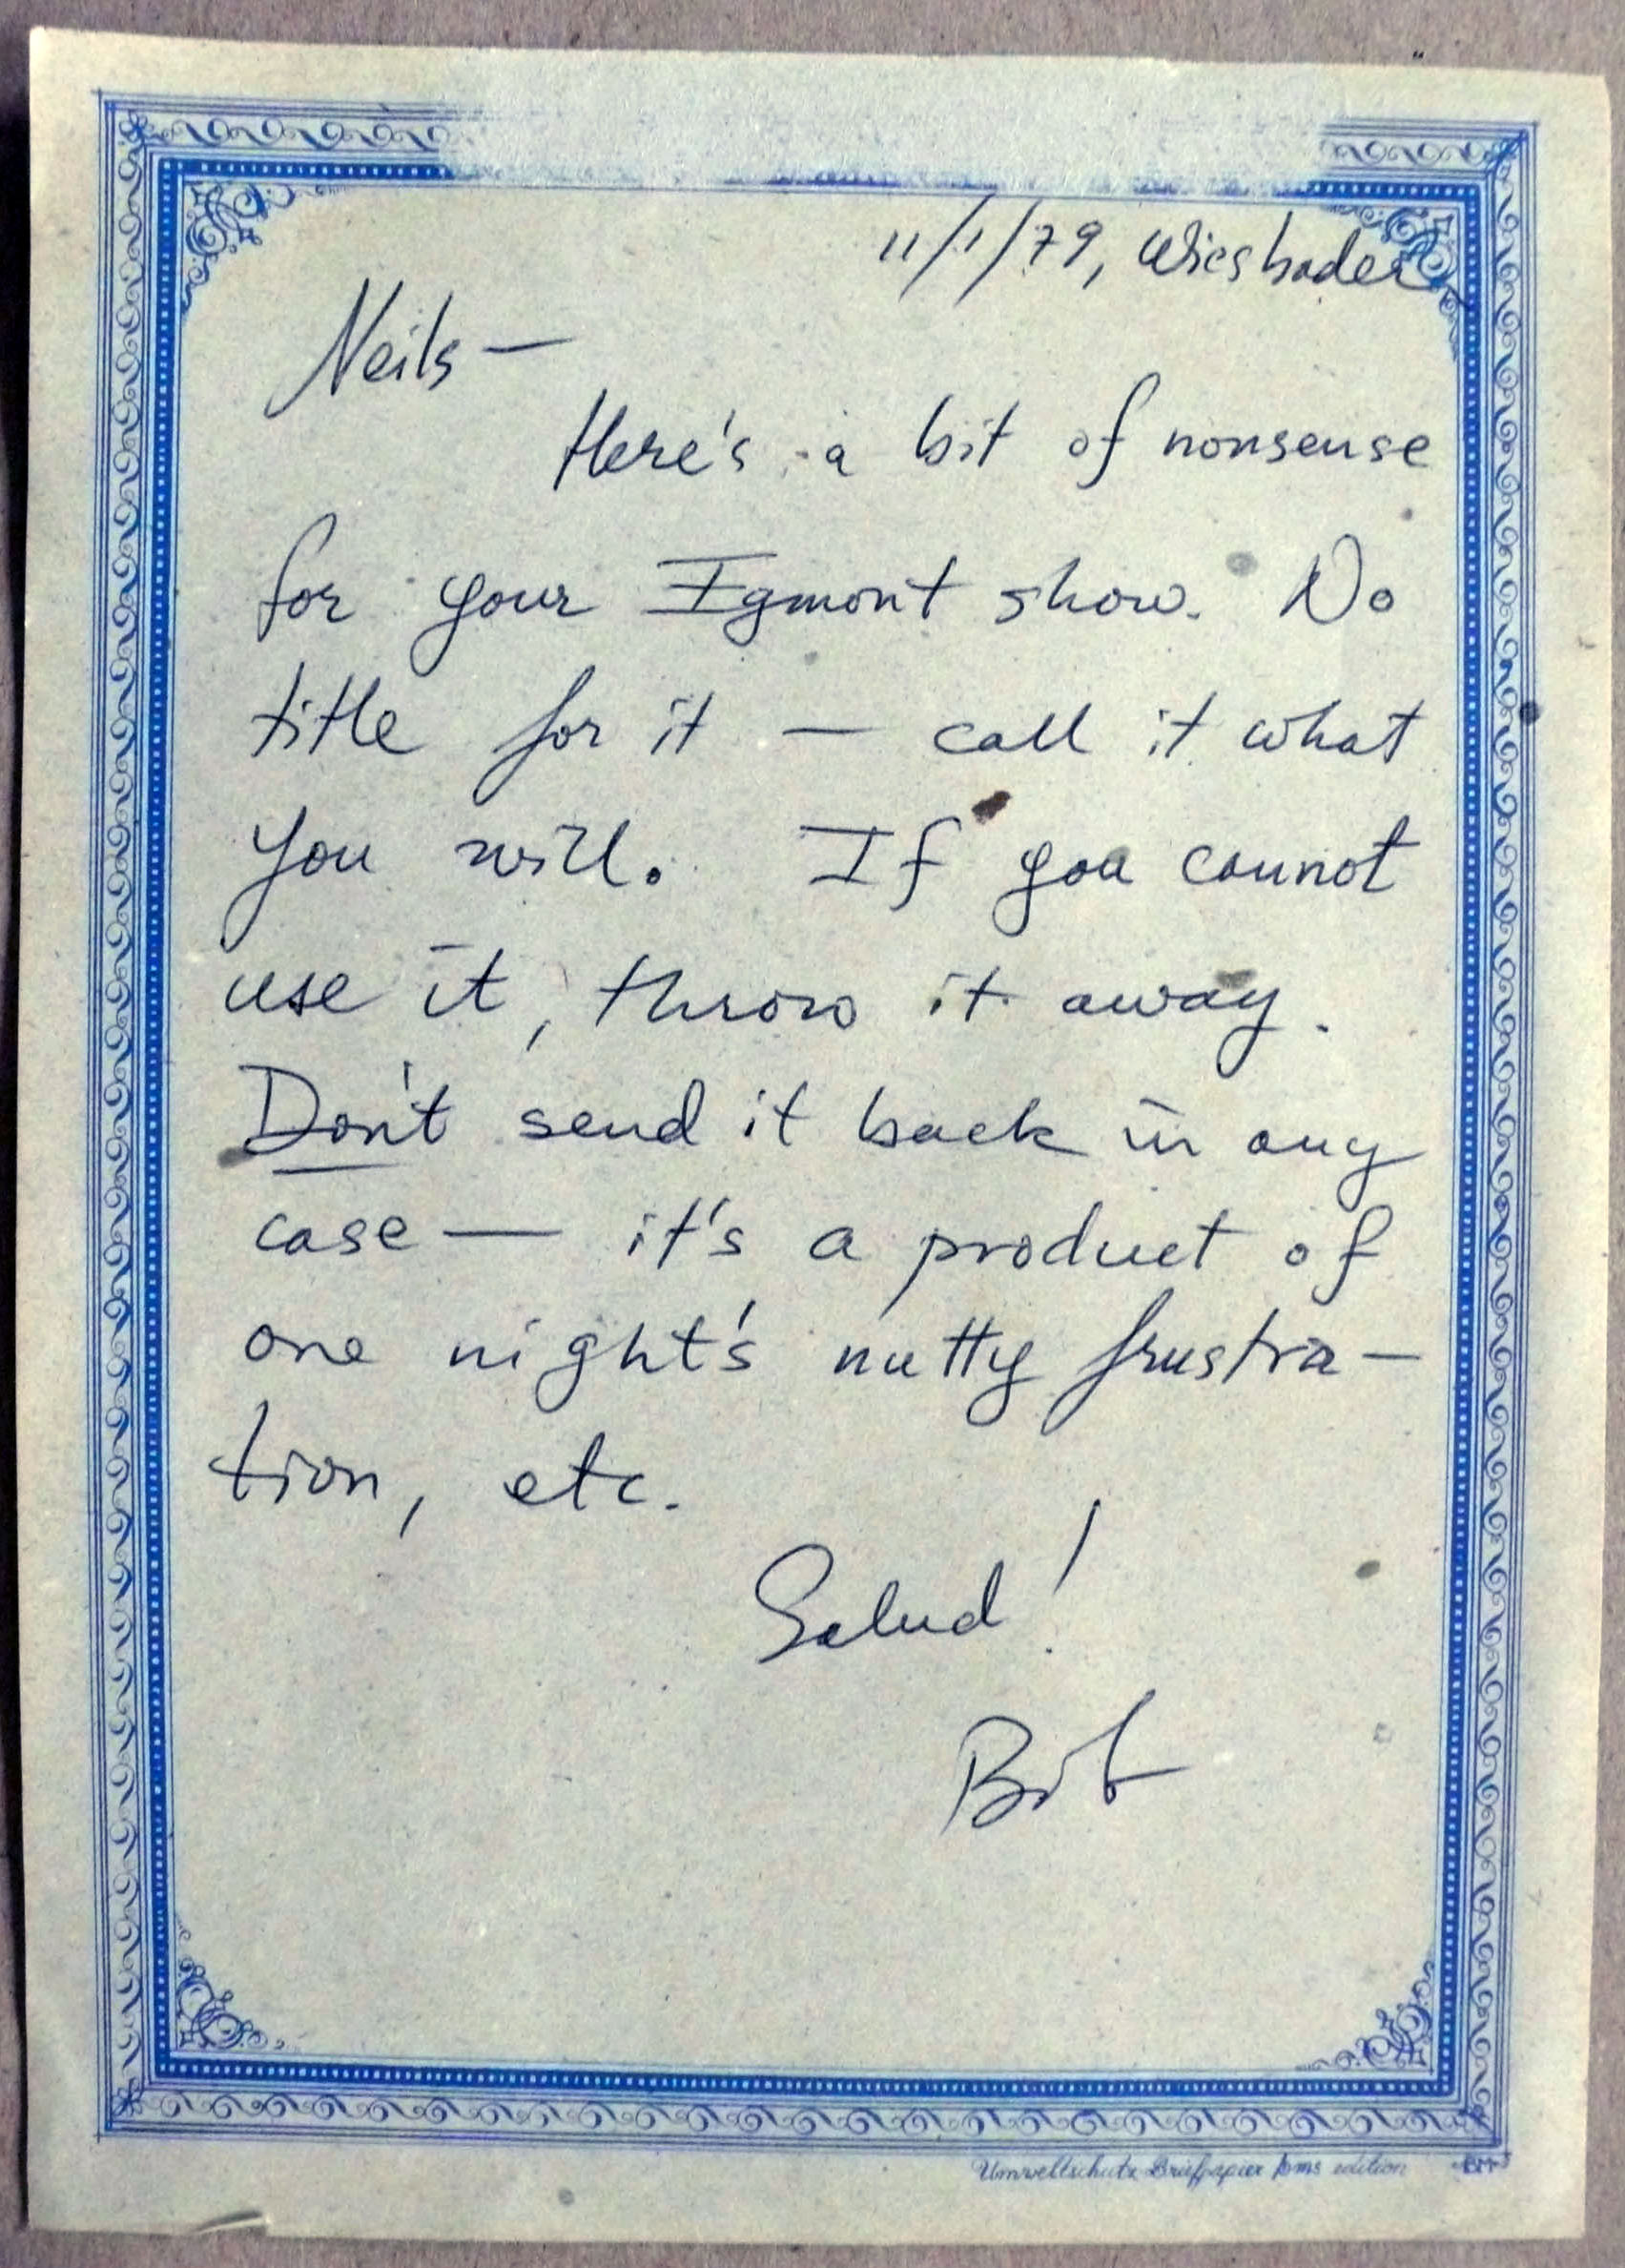 11/1/79, Wiesbaden
Neils —
Here's a bit of nonsense
for your Egmont show. No
title for it — call it what
you will. If you cannot
use it, throw it away.
Don't send it back in any
case — it's a product of
one night's nutty frustra-
tion, etc.
Salud!
Bob
Umweltschutz Briefpapier bms edition BM